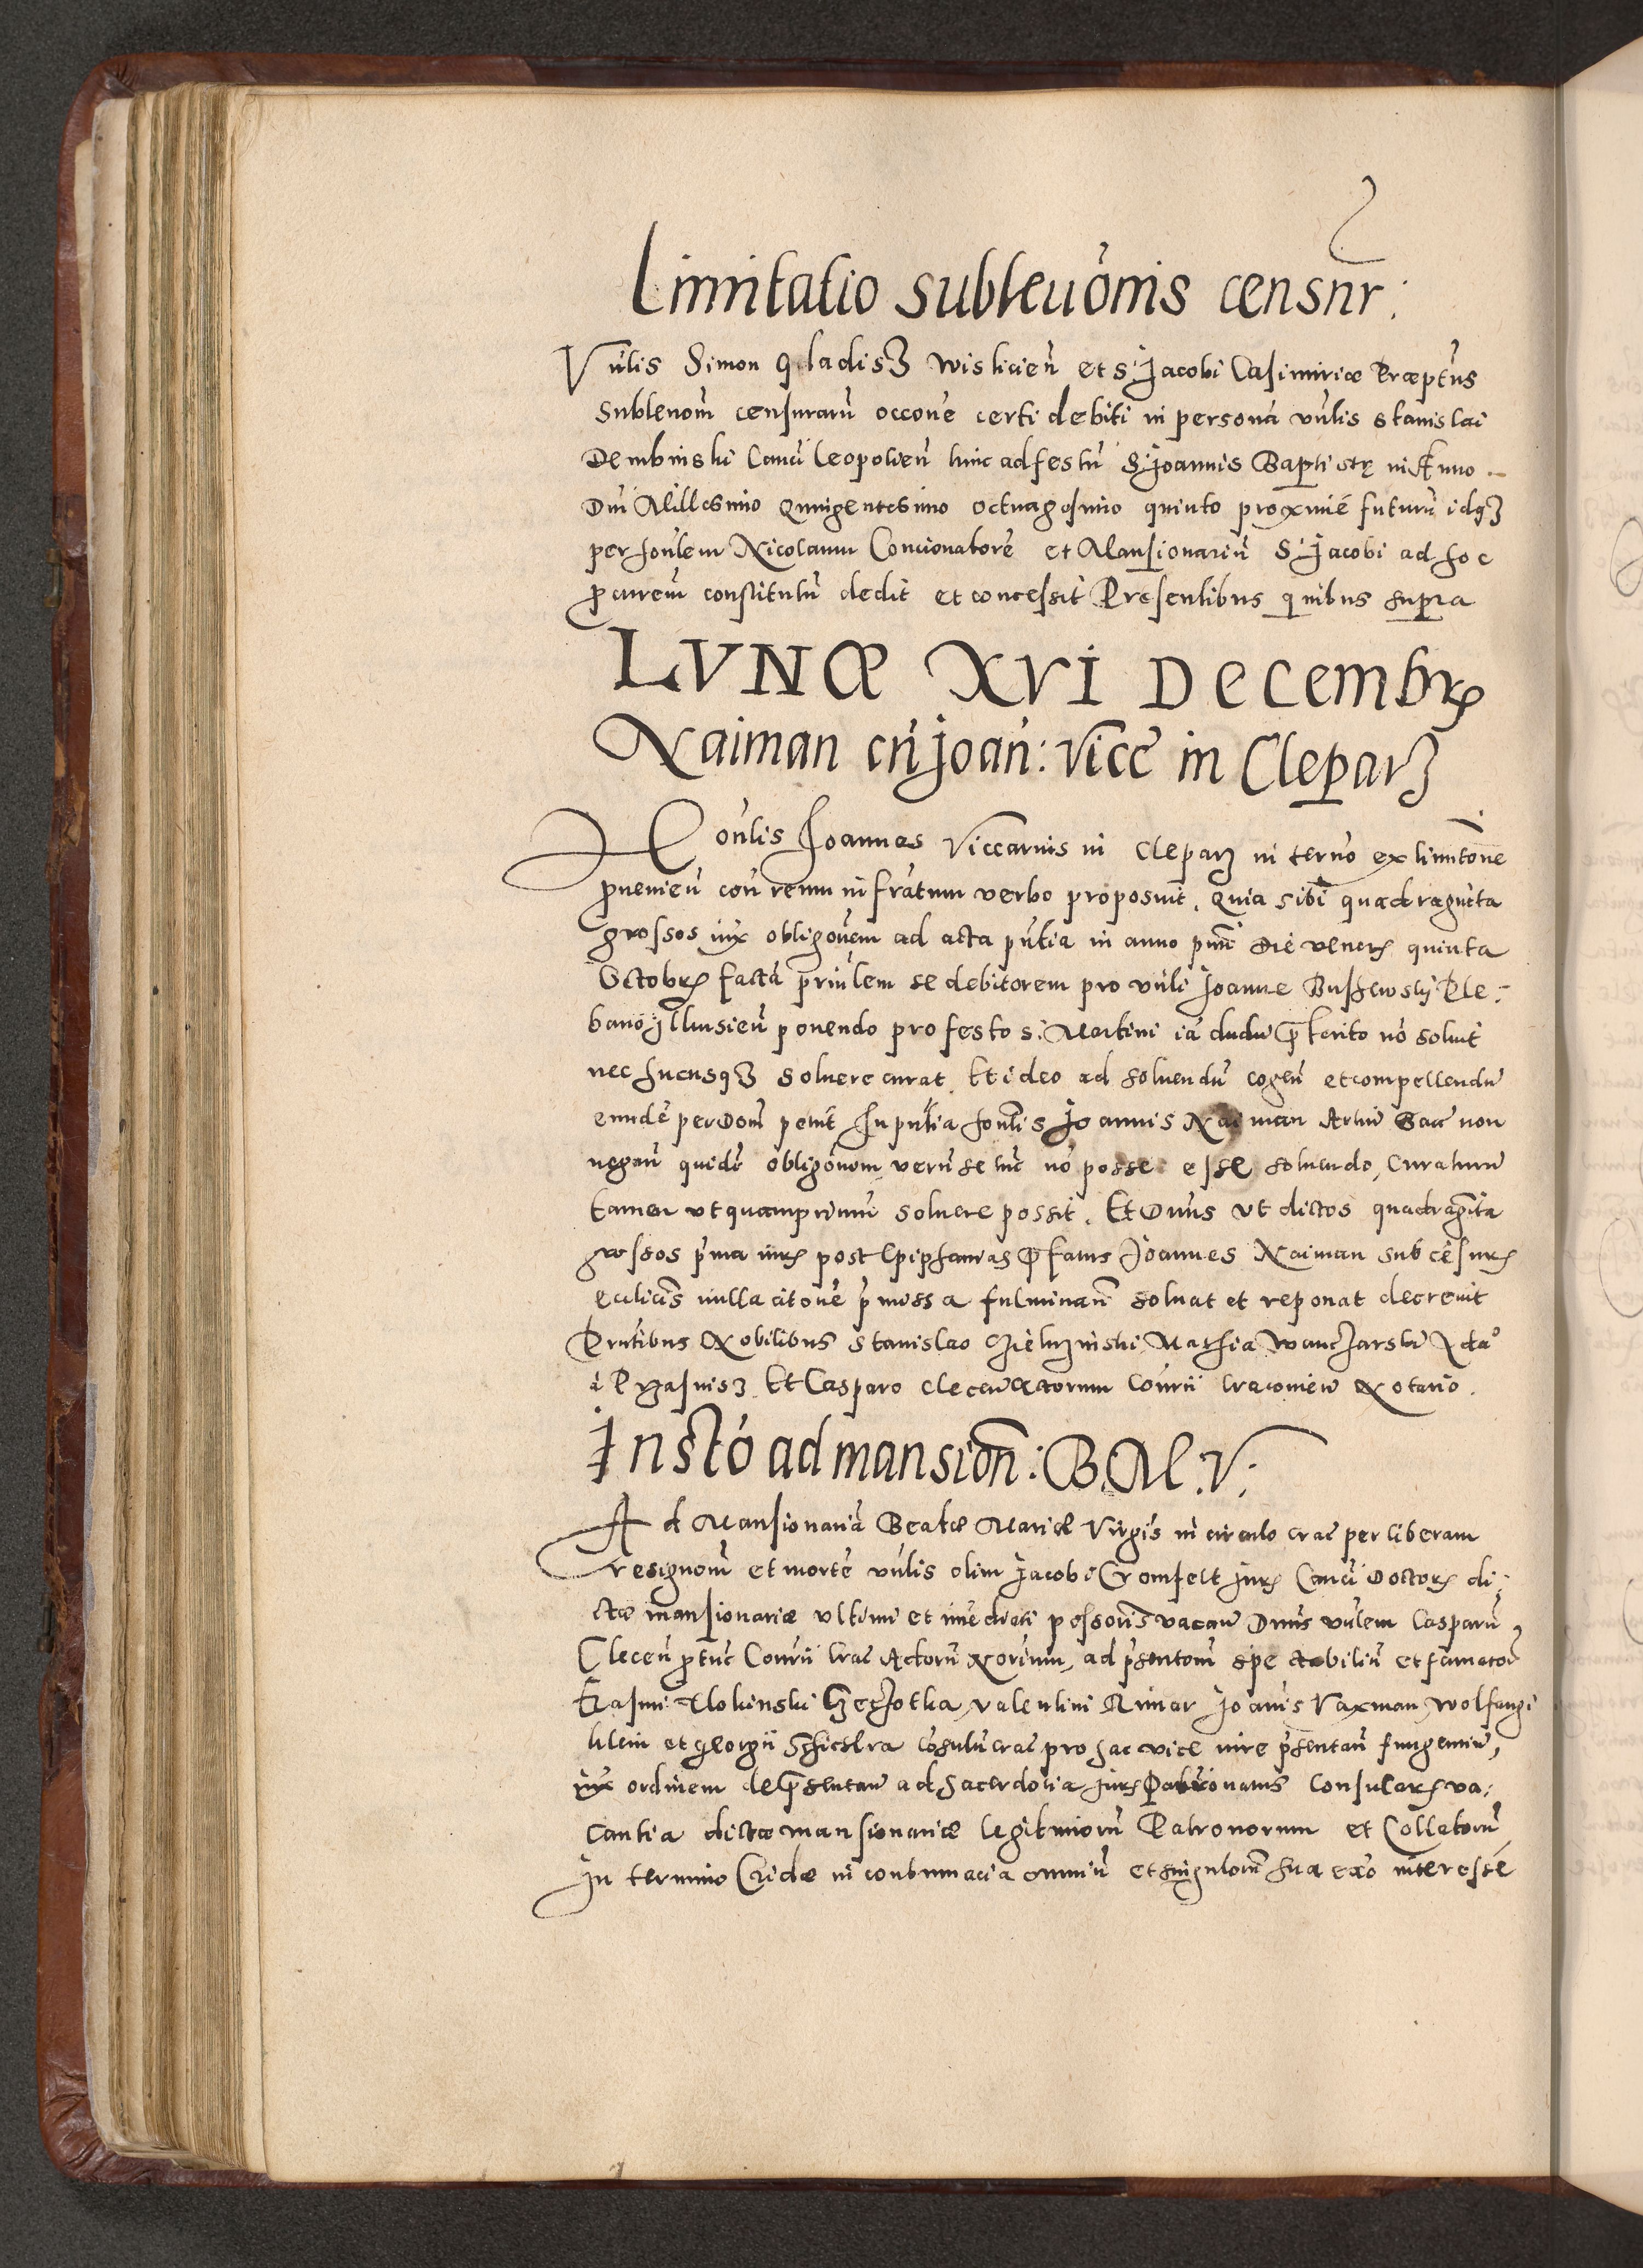 Limitatio subleuōnis censur:
Vūlis Simon Gladisz wislicień et S. Jacobi Casimiriæ Præptūs
subleuōm censurarū occōne certi debiti in personā vūlis Stanislai
Dembinski Canci Leopolień hinc ad festū S. Joannis Baptistę in Anno
Dni Millesimo Quingentesimo octuagesimo quinto proximè futurū idqz
per honlem Nicolaum Concionatorē et Mansionariū S. Jacobi ad hoc
pcurem constitutū dedit et concessit Presentibus quibus supra
LVNÆ XVI Decembr
Naiman cū Joań: Vicē in Cleparz
Honlis Joannes Viccarius in Cleparz in termō ex limitōne
pueniēn coń reum infratum verbo proposuit, quia sibi quadraginta
grossos iux obligōem ad acta pntia in anno pnti die vener quinta
Octobr factā prinlem se debitorem pro vūli Joanne Bussewskij Ple-
bano Illkusień ponendo pro festo S. Martini iā dudū pterito nō soluit
nec hucusqz soluere curat. Et ideo ad soluendū cogen et compellendū
eundē per Dom petiit In pntia honlis Joannis Naiman Artiū Bacc non
negań quidē obligōnom, verū se tūc nō posse esse soluendo, curaturū
tamen vt quamprimū soluere possit. Et Dnus vt dictos quadraginta
grossos pma iur post Epiphanias pfatus Joannes Naiman sub cēsur
ecclicis nulla citōne pmissa fulminań soluat et reponat decreuit
Pntibus Nobilibus Stanislao Mathia
à Prasnisz Et Casparo Clecen Actorum Conrii Cracouień Notario.
Instō ad mansion: B. M. V.
Ad Mansionariā Beatæ Mariæ Virgis in circulo crac per liberam
resignom et mortē vūlis olim Jacobi Cromfelt Jur Canci Doctor di-
ctæ mansionariæ vltimi et imēdiati possoris vacań Dnus vūlem Casparū
Clecen ptūc Conrii Crac Actorū Notrium, ad psentom spectabiliū et famator
Erasmi Czeczotka, Valentini Rimar Joanis Vaxman, Wolfangi
klein et Georgii Schicdra cōsulū crac pro hac vice iure psentań fungentiū,
iux ordinem depsentań ad sacerdotia Jur Patronatus Consular va-
cantia dictæ mansionariæ legitimorū Patronorum et Collatorū
In termino Cridæ in contumacia omniū et singulorū sua exō interesse